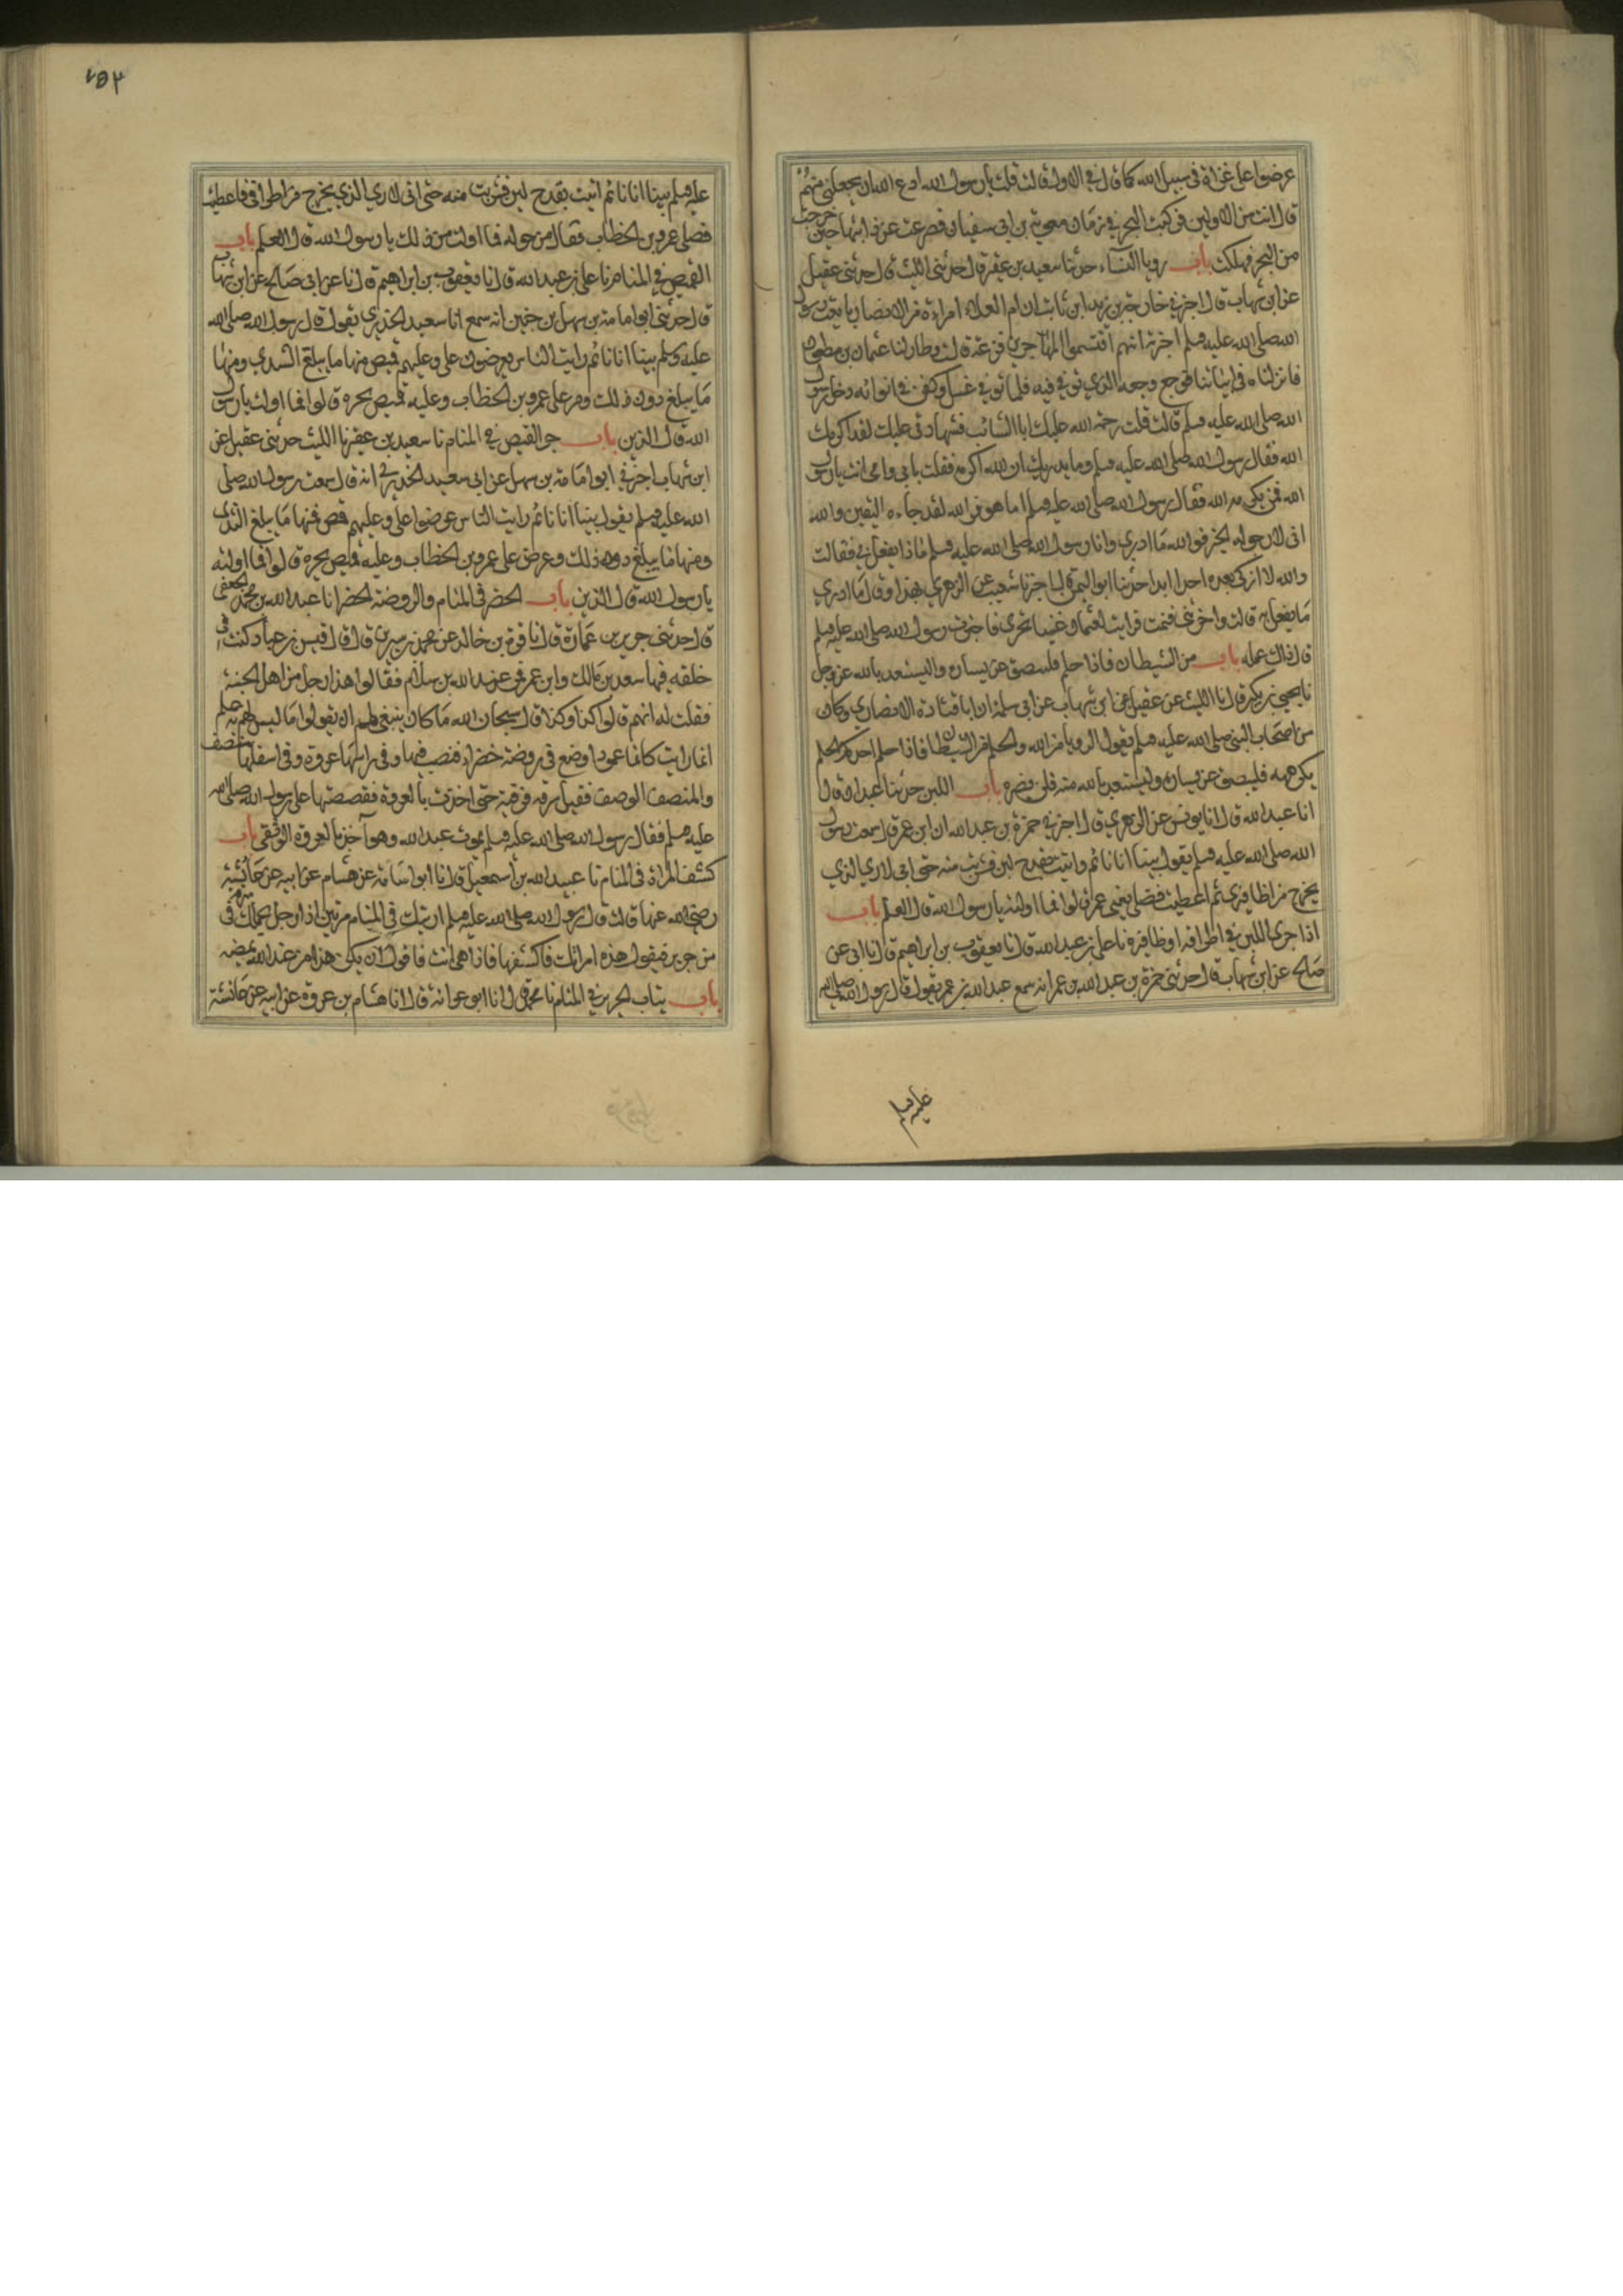 عرضوا على غزاة فى سبيل الله كما قال فى الاولى قالت قلت يا رسول الله ادع الله ان يجعلنى منهم
قال انت من الاولين فركبت البحر فى زمان معوية بن ابى سفيان فصرعت عن دابتها حين خرجت
من البحر فهلكت باب رويا النساء حدثنا سعيد بن عفير قال حدثنى الليث قال حدثنى عقيل
عن ابن شهاب قال اخبرنى خارجة بن زيد ابن ثابت ان ام العلاء امراة من الانصار بايعت رسول
الله صلى الله عليه وسلم اخبرته انهم اقتسموا المهاجرين قرعة قالت وطار لنا عثمان بن مظعون
فانزلناه فى ابياتنا فوجع وجعه الذي توفى فيه فلما توفى غسل وكفن فى اثوابه دخل رسول
الله صلى الله عليه وسلم قالت قلت رحمة الله عليك ابا السائب فشهادتى عليك لقد اكرمك
الله فقال رسول الله صلى الله عليه وسلم وما يدريك ان الله اكرمه فقلت بابي وامي انت يا رسول
الله فمن يكرمه الله فقال رسول الله صلى الله عليه وسلم اما هو فوالله لقد جاءه اليقين والله
انى لارجو له الخير فوالله ما ادري وانا رسول الله صلى الله عليه وسلم ماذا يفعل بى فقالت
والله لا ازكى بعده احدا ابدا حدثنا ابو اليمان انا اخبرنا شعيب عن الزهري بهذا وقال ما ادري
ما يفعل به قالت واحزننى فنمت فرايت لعثمان عينا تجرى فاخبرت رسول الله صلى الله عليه وسلم
قال ذاك عمله باب من الشيطان فاذا حلم فليبصق عن يساره واليستعذ بالله عز وجل
نا يحيى بن بكير قال نا الليث عن عقيل عن ابن شهاب عن ابى سلمة ان ابا قتادة الانصاري وكان
من اصحاب النبى صلى الله عليه وسلم يقول الرويا من الله والحلم من الشيطان فاذا حلم احدكم الحلم
يكرهه فليبصق عن يساره وليستعذ بالله منه فلن يضره باب اللبن حدثنا عبدان قال
انا عبد الله قال انا يونس عن الزهري قال اخبرنى حمزة بن عبد الله ان ابن عمر قال سمعت رسول
الله صلى الله عليه وسلم يقول بينا انا نائم واتيت بقدح لبن فشربت منه حتى انى لاري الذي
يخرج من اظافيرى ثم اعطيت فضلى يعنى عمر قالوا فما اولته يا رسول الله قال العلم باب
اذا جرى اللبن فى اطرافه او ظافيره نا على بن عبد الله قال نا يعقوب بن ابراهيم قال نا ابى عن
صالح عن ابن شهاب قال حدثنى حمزة بن عبد الله بن عمر انه سمع عبد الله بن عمر يقول قال رسول الله صلى الله
عليه وسلم
٤٥٢
عليه وسلم بينا انا نائم اتيت بقدح لبن فشربت منه حتى انى لاري الذي يخرج من اطرافى فاعطيت
فضلى عمر بن الخطاب فقال من حوله فما اولت من ذلك يا رسول الله قال العلم باب
القميص فى المنام نا على بن عبد الله قال نا يعقوب بن ابراهيم قال نا عن ابى صالح عن ابن شهاب
قال حدثنى ابو امامة بن سهل بن حنين انه سمع انا سعيد الخدري يقول قال رسول الله صلى الله
عليه وسلم بينا انا نائم رايت الناس يعرضون على وعليهم قميص منها ما يبلغ الثدي ومنها
ما يبلغ دون ذلك ومر على عمر بن الخطاب وعليه قميص يجره قالوا فما اولت يا رسول
الله قال الدين باب جر القميص فى المنام نا سعيد بن عفير نا الليث حدثنى عقيل عن
ابن شهاب اخبرنى ابو امامة بن سهل عن ابى سعيد الخدري انه قال سمعت رسول الله صلى
الله عليه وسلم يقول بينا انا نائم رايت الناس عرضوا على وعليهم قمص فمنها ما يبلغ الثدى
ومنها ما يبلغ دون ذلك وعرض على عمر بن الخطاب وعليه قميص يجره قالوا فما اولته
يا رسول الله قال الدين باب الخضر فى المنام والروضة الخضرا نا عبد الله بن محمد الجعفى
قال حدثنى حرير بن عمارة قال نا قرة بن خالد عن محمد بن سيرين قال قال قيس بن عباد كنت فى
حلقه فيها سعد بن مالك وابن عمر فمر عبد الله بن سلام فقالوا هذا رجل من اهل الجنة
فقلت له انهم قالوا كذا وكذا قال سبحان الله ما كان ينبغى لهم ان يقولوا ما ليس لهم به علم
انما رايت كانما عمود اوضع فى روضة خضراء فنصب فيها وفى راسها عروة وفى اسفلها منصف
والمنصف الوصيف فقيل ارقه فرقيته حتى اخذت بالعروة فقصصتها على رسول الله صلى الله
عليه وسلم فقال رسول الله صلى الله عليه وسلم يموت عبد الله وهو آخذ بالعروة الوثقى باب
كشف المراة فى المنام نا عبيد الله بن اسمعيل قال نا ابو اسامة عن هشام عن ابيه عن عائشة
رضى الله عنها قالت قال رسول الله صلى الله عليه وسلم اريتك فى المنام مرتين اذا رجل يحملك فى
من حرير فيقول هذه امراتك فاكشفها فاذا هى انت فاقول ان يكن هذا من عند الله يمضه
باب ثياب الحرير فى المنام نا محمد قال انا ابو عوانة قال انا هشام بن عروة عن ابيه عن عائشة